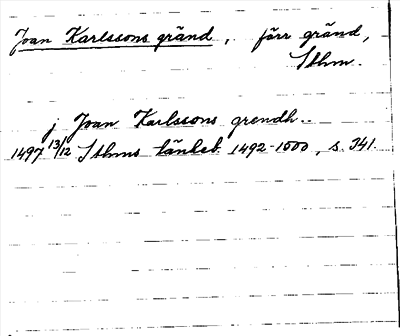 Joan Karlssons gränd, förr gränd,
Sthm.
j Joan Karlssons grendh..
1497 13/12 Sthms tänkeb 1492-1500, s. 341.